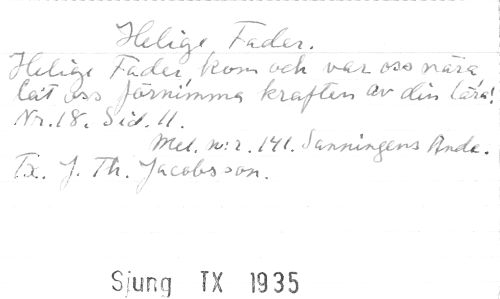 Helige Fader.
Helige Fader, kom och var oss nära,
låt oss förnimma kraften av din lära!
Nr. 18. Sid. 11.
Mel. n:r. 141. Sanningens Ande.
Tx. J. Th. Jacobsson.
Sjung TX 1935